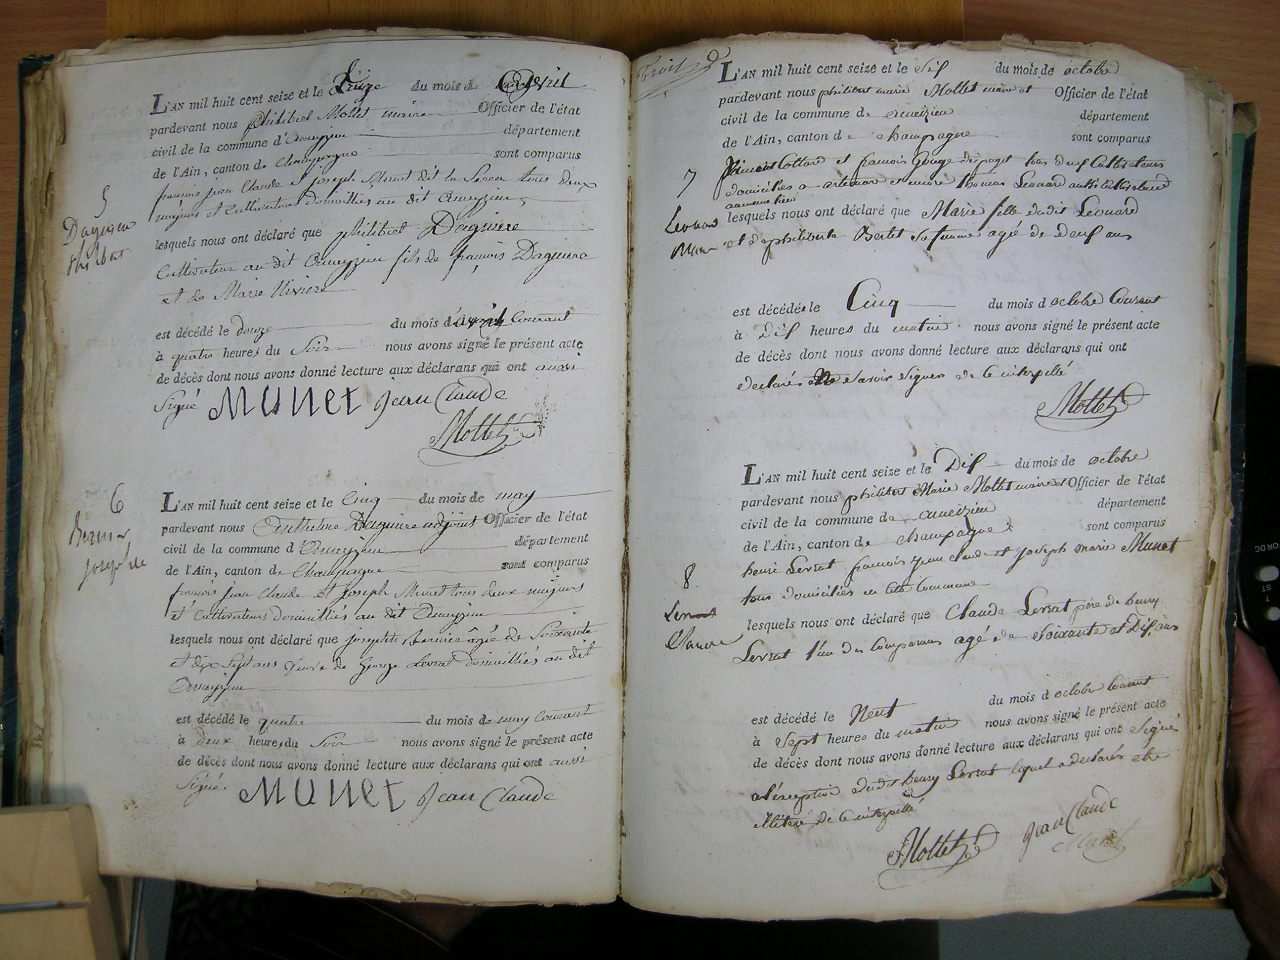 L'AN mil huit cent seize et le du mois d avril
pardevant nous philibert Mollet maire Officier de l'état
civil de la commune d' département
de l'Ain, canton de Champagne sont comparus
françois jean Claude et joseph Munet tous deux
majeurs et Cultivateurs domiciliés au dit
5
Daguiere
philibert
lesquels nous ont déclaré que philibert Daguiere
Cultivateur au dit fils de françois Daguiere
et de Marie Riviere
est décédé le douze du mois d'avril Courant
à quatre heures du Soir nous avons signé le présent acte
de décès dont nous avons donné lecture aux déclarans qui ont aussi
Signé MUNET jean Claude
Mollet
6
Bernier
josephte
L'AN mil huit cent seize et le Cinq du mois de may
pardevant nous Anthelme Daguiere adjoint Officier de l'état
civil de la commune d' département
de l'Ain, canton de Champagne sont comparus
françois jean Claude et joseph Munet tous deux majeurs
et Cultivateurs domiciliés au dit
lesquels nous ont déclaré que josephte Bernier agée de Soixante
et dix Sept ans veuve de George Levrat domiciliés au dit
est décédé le quatre du mois de may Courant
à deux heures du Soir nous avons signé le présent acte
de décès dont nous avons donné lecture aux déclarans qui ont aussi
Signé. MUNET jean Claude
L'AN mil huit cent seize et le Six du mois de octobre
pardevant nous philibert marie Mollet maire et Officier de l'état
civil de la commune de département
de l'Ain, canton de Champagne sont comparus
et françois tous deux Cultivateurs
domiciliés a et encore thomas Leouard
7
Leouard
Marie
lesquels nous ont déclaré que Marie fille dudit Leouard
et de philiberte Bertet sa femme agé de deux ans
est décédé le Cinq du mois d octobre Courant
à Dix heures du matin nous avons signé le présent acte
de décès dont nous avons donné lecture aux déclarans qui ont
declarés ne Savoir Signer de ce interpellé
Mollet
L'AN mil huit cent seize et le Dix du mois de octobre
pardevant nous philibert Marie Mollet maire et Officier de l'état
civil de la commune de département
de l'Ain, canton de Champagne sont comparus
henri Levrat françois jean claude et joseph marie Munet
tous domiciliés en dite Commune
8
Levrat
Claude
lesquels nous ont déclaré que Claude Levrat père de henry
Levrat l'un des Comparans agé de Soixante et Dix ans
est décédé le Neuf du mois d octobre courant
à Sept heures du matin nous avons signé le présent acte
de décès dont nous avons donné lecture aux déclarans qui ont Signé
a l'éxception dudit henry Levrat lequel a declarés etre
illiteré de ce interpellé
Mollet jean Claude
Munet